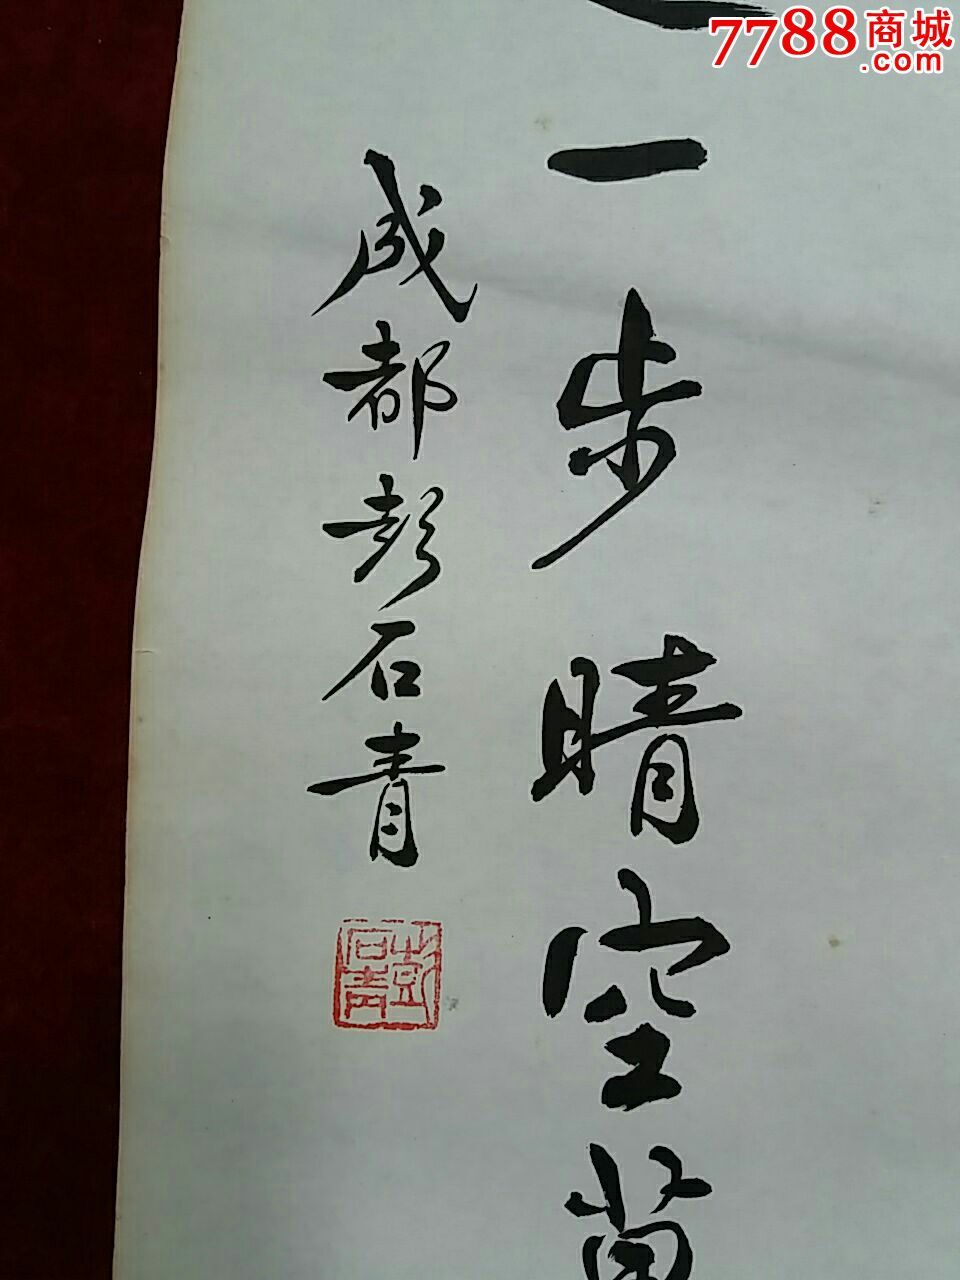 7788商城
.com
一步晴空万
成都彭石青
彭石青